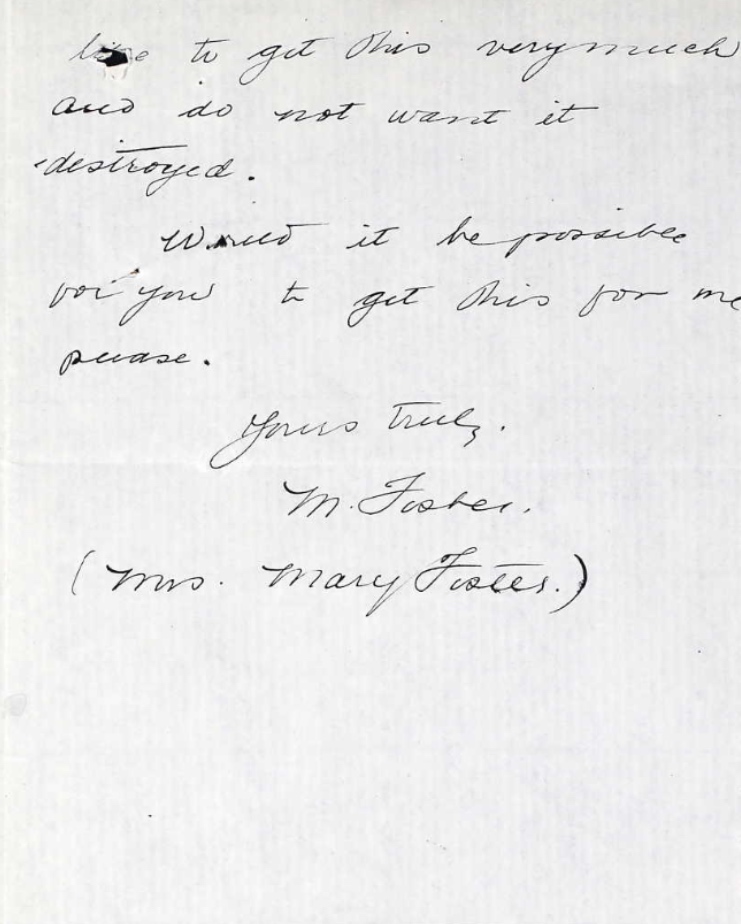 like to get this very much
and do not want it
destroyed.
Would it be possible
for you to get this for me
please.
Yours truly.
M. Foster.
(Mrs. Mary Foster.)